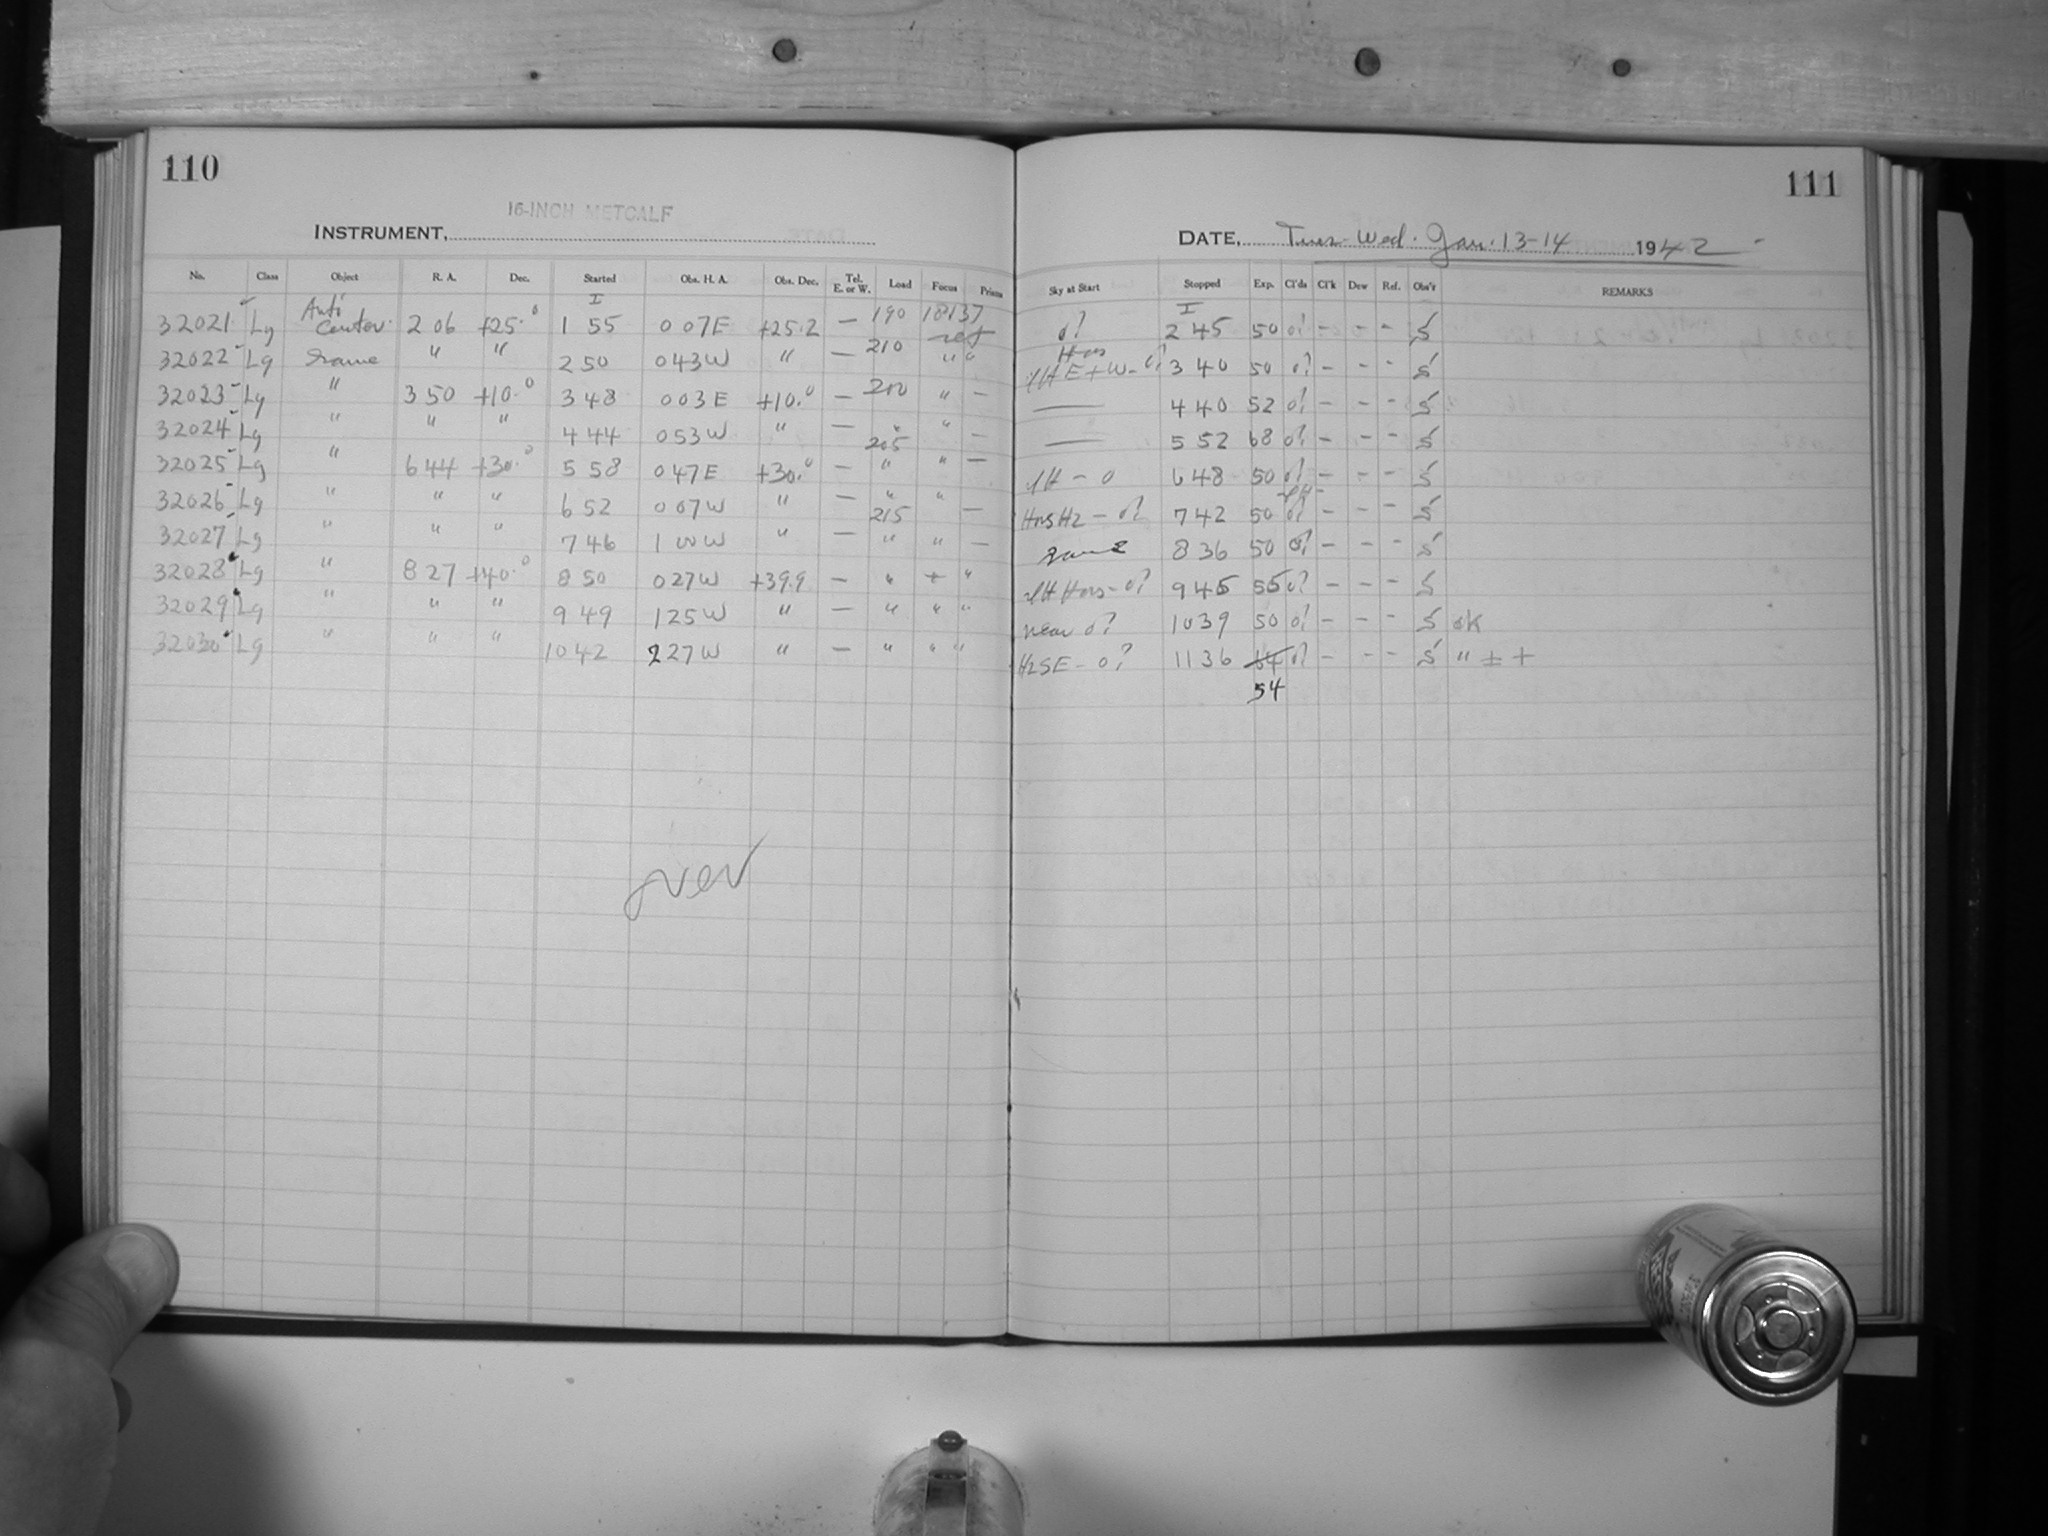 110
16-INCH METCALF
INSTRUMENT,
No. Class Object R. A. Dec. Started Obs. H. A. Obs. Dec. Tel. E. or W. Load Focus Prisms
32021 Lg Anti Center 2 06 +25.0 I 1 55 0 07E +25.2 — 190 18137
32022 Lg same " " 2 50 0 43W " — 210 " "
32023 Lg " 3 50 +10.0 3 48 0 03E +10.0 — 200 " —
32024 Lg " " " 4 44 0 53W " — " " —
32025 Lg " 6 44 +30.0 5 58 0 47E +30.0 — 205 " " —
32026 Lg " " " 6 52 0 07W " — " " —
32027 Lg " " " 7 46 1 00W " — 215 " " —
32028 Lg " 8 27 +40.0 8 50 0 27W +39.9 — " + "
32029 Lg " " " 9 49 1 25W " — " " "
32030 Lg " " " 10 42 2 27W " — " " "
over
111
DATE, Tues-Wed. Jan. 13-14 1942
Sky at Start Stopped Exp. Cl'ds Cl'k Dew Ref. Obs'r REMARKS
0? I 2 45 50 0? - - - S
Hors
E+W-0? 3 40 50 0? - - - S
— 4 40 52 0? - - - S
— 5 52 68 0? - - - S
- 0 6 48 50 0? - - - S
HorsHz - 0? 7 42 50 0? - - - S
same 8 36 50 0? - - - S
Hors-0? 9 45 55 0? - - - S
near 0? 10 39 50 0? - - - S ok
HzSE-0? 11 36 64 0? - - - S " ± +
54